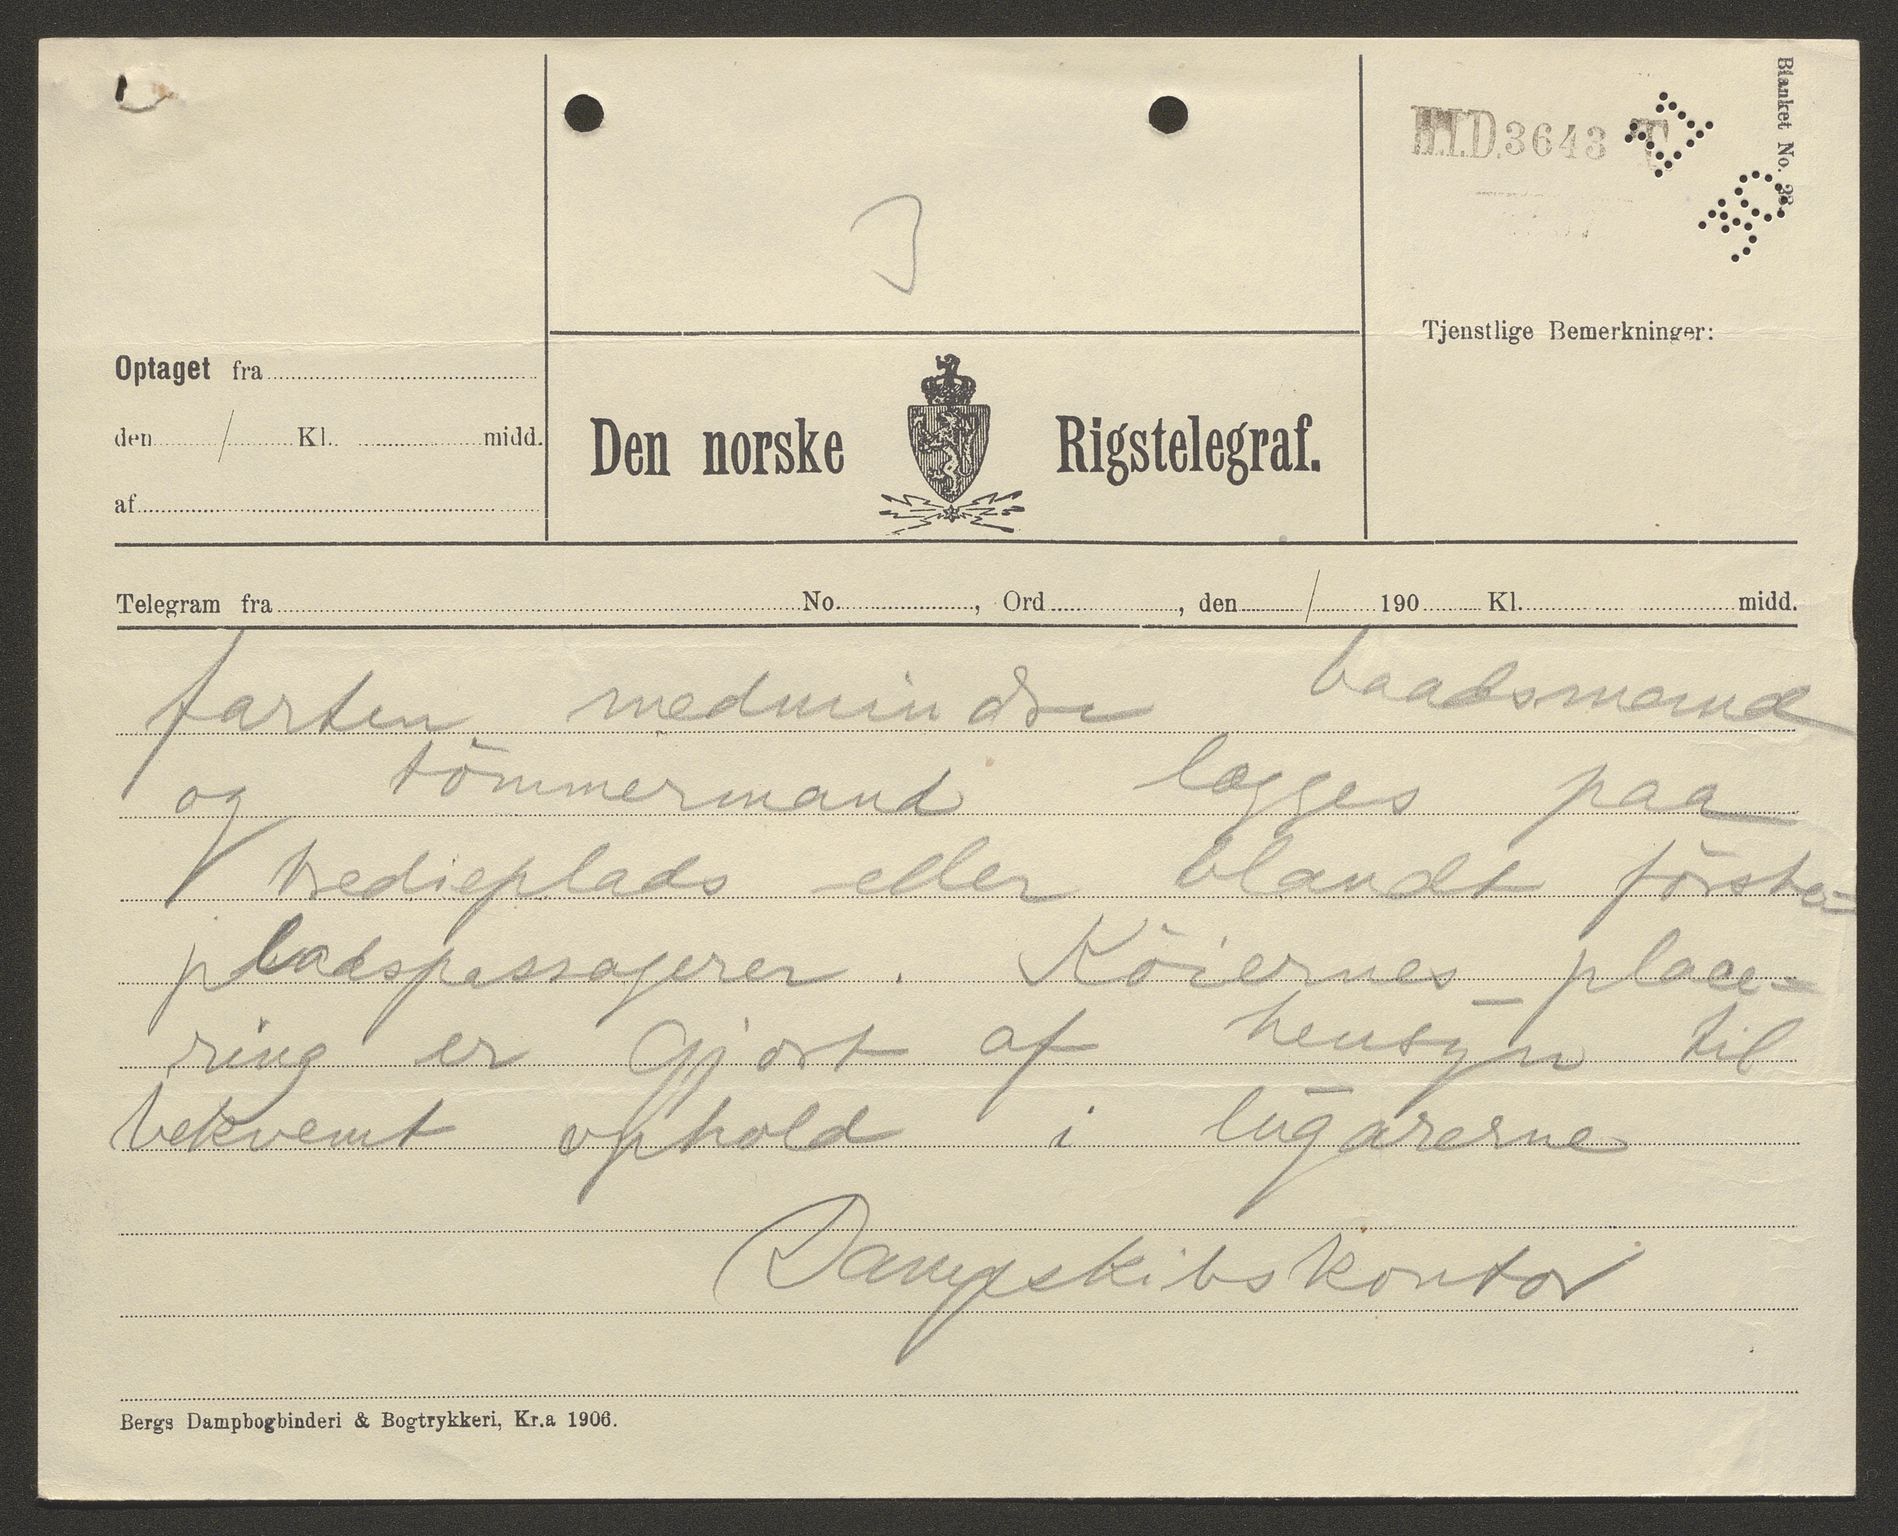 H.I.D. 3643 T
Blanket No. 23.
3
Tjenstlige Bemerkninger:
Optaget fra
den / Kl. midd.
af
Den norske Rigstelegraf.
Telegram fra No. , Ord , den / 190 Kl. midd.
farten medmindre baadsmand
og tömmermand lægges paa
tredieplads eller blandt förste-
pladspassagerer. Köiernes place-
ring er gjort af hensyn til
bekvemt ophold i lŭgarerne
Dampskibskontor
Bergs Dampbogbinderi & Bogtrykkeri, Kr.a 1906.